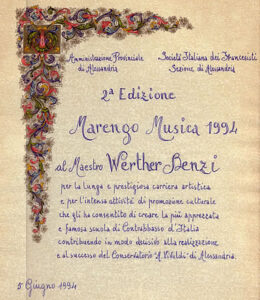 Amministrazione Provinciale
di Alessandria
Società Italiana dei Francesisti
Sezione di Alessandria
2ª Edizione
Marengo Musica 1994
al Maestro Werther Benzi
per la lunga e prestigiosa carriera artistica
e per l'intensa attività di promozione culturale
che gli ha consentito di creare la più apprezzata
e famosa scuola di Contrabbasso d'Italia
contribuendo in modo decisivo alla realizzazione
e al successo del Conservatorio "A. Vivaldi" di Alessandria.
5 Giugno 1994